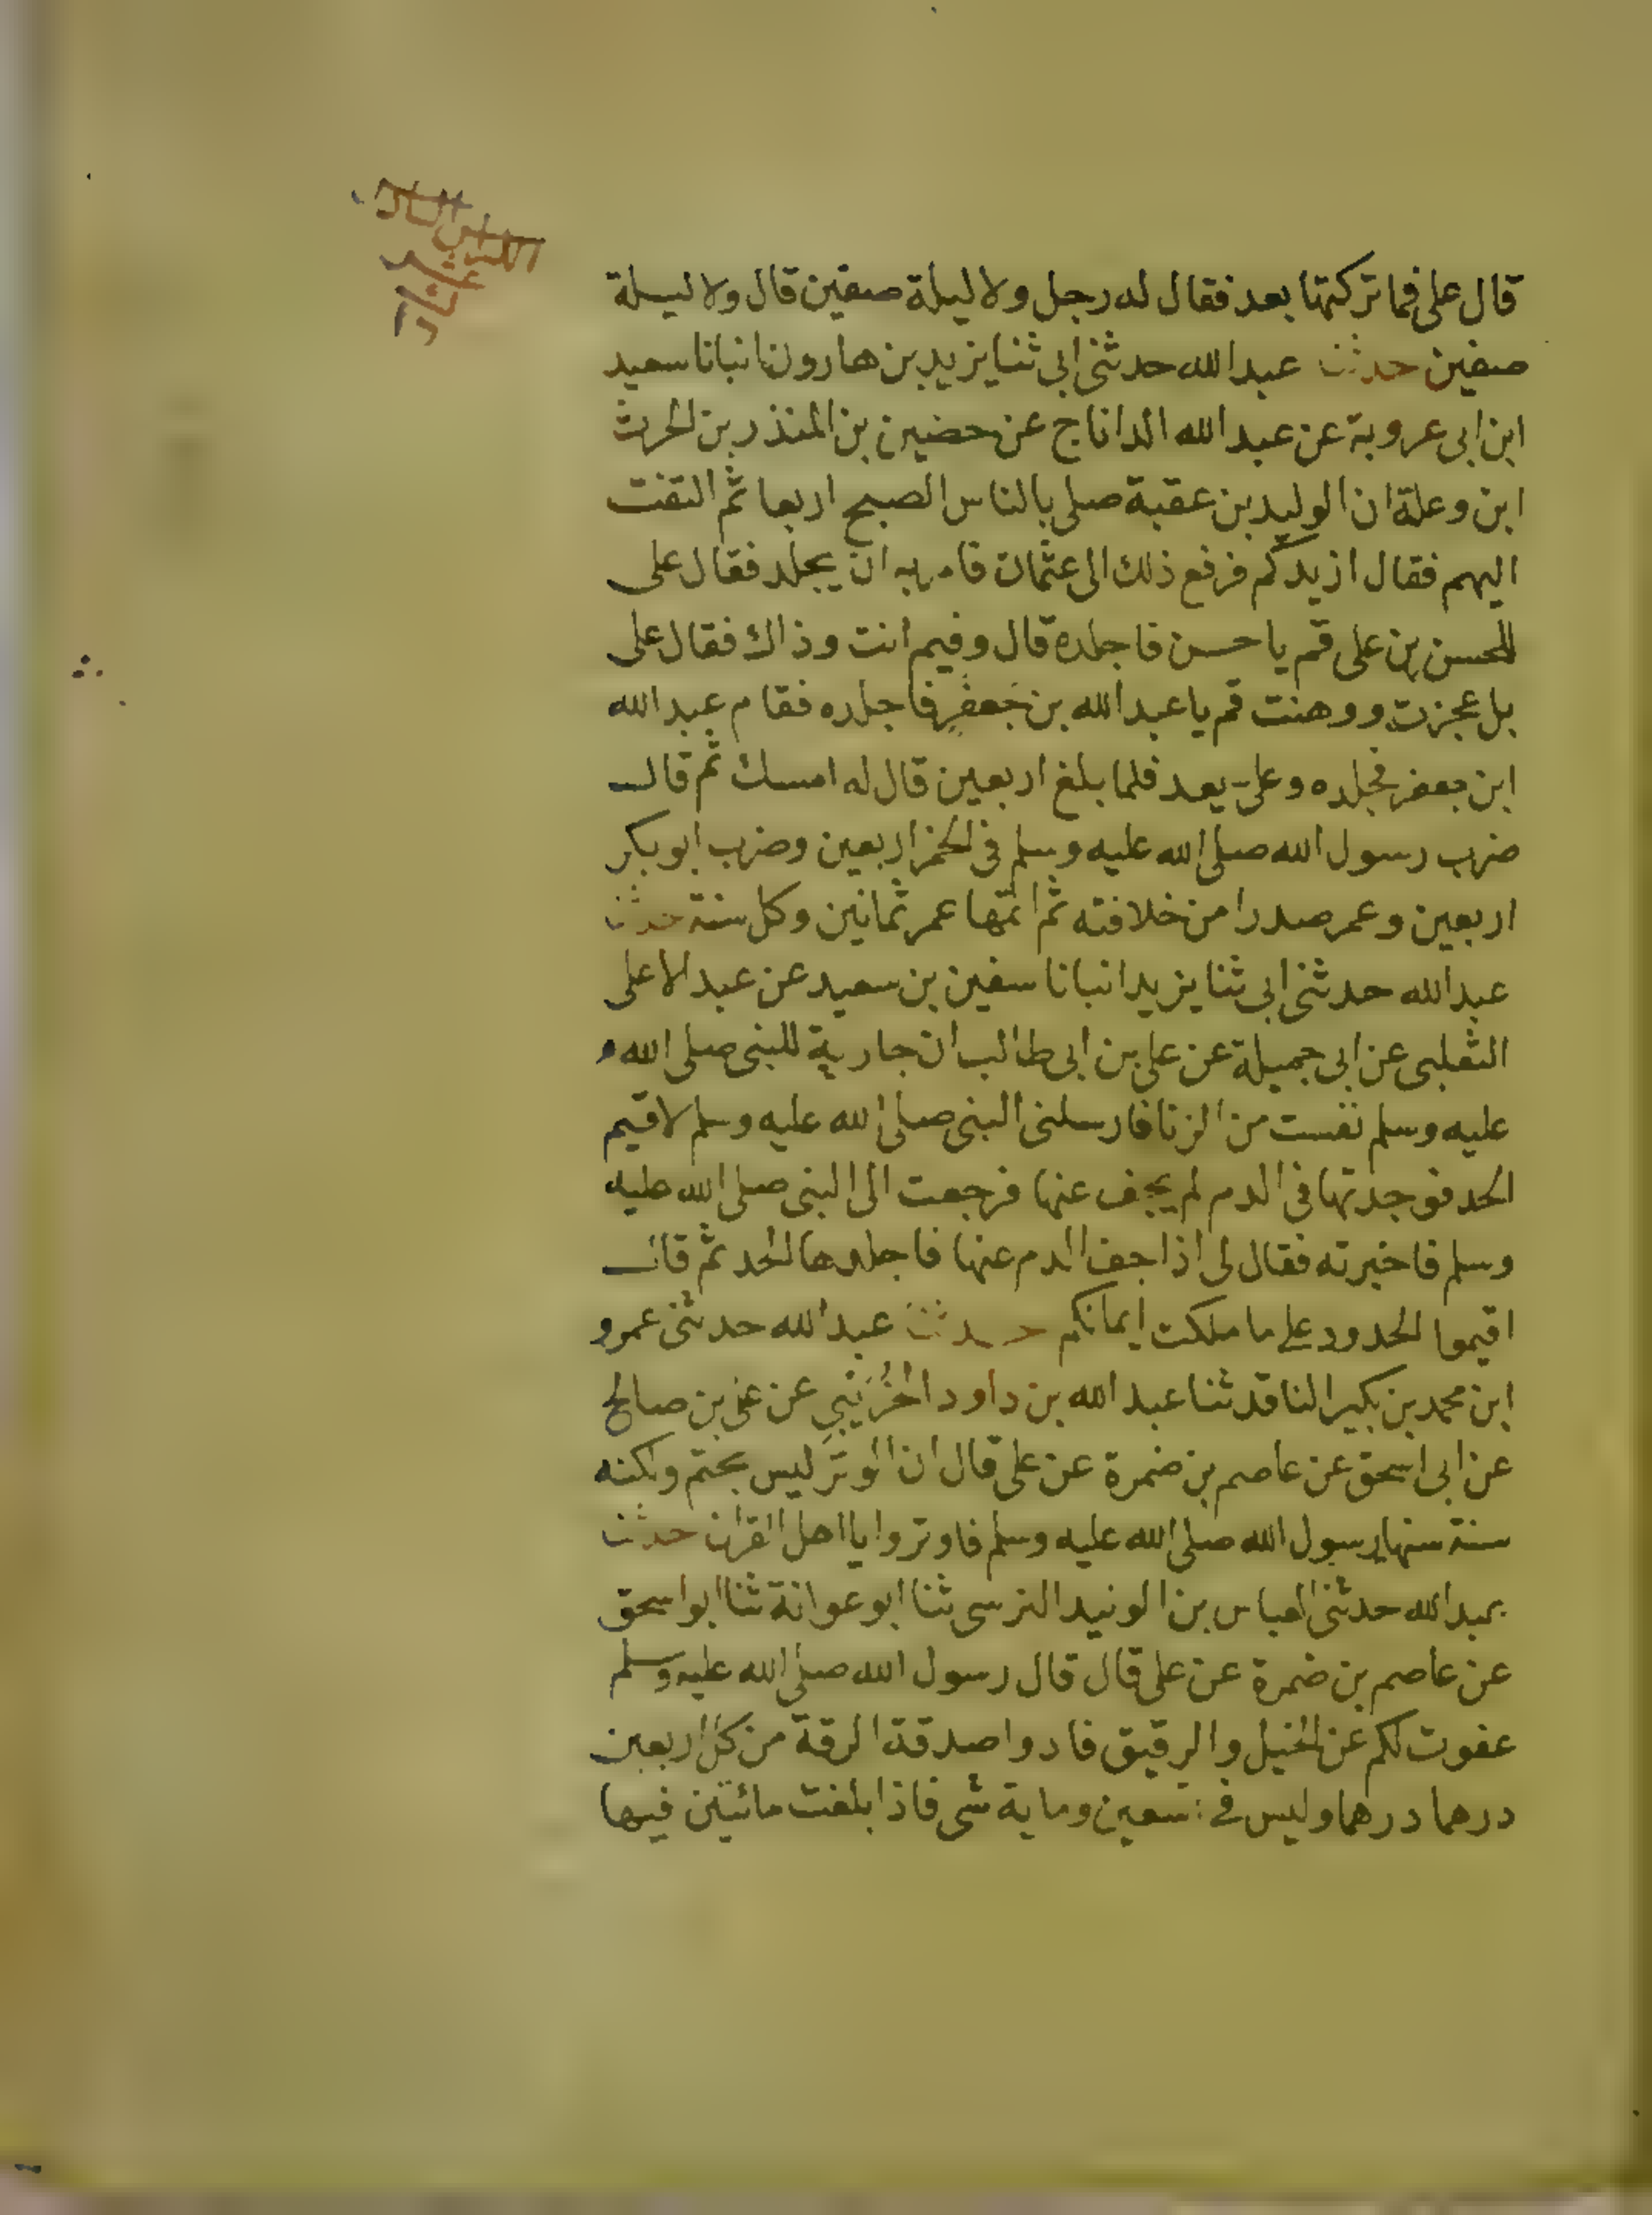 قال على فما تركتها بعد فقال له رجل ولا ليلة صفين قال ولا ليلة
صفين حدثنا عبد الله حدثنى ابى ثنا يزيد بن هارون انبانا سعيد
ابن ابى عروبة عن عبد الله الداناج عن حضين بن المنذر بن الحرث
ابن وعلة ان الوليد بن عقبة صلى بالناس الصبح اربعا ثم التفت
اليهم فقال ازيدكم فرفع ذلك الى عثمان فامر به ان يجلد فقال على
للحسن بن على قم يا حسن فاجلده قال وفيم انت وذاك فقال على
بل عجزت ووهنت قم يا عبد الله بن جعفر فاجلده فقام عبد الله
ابن جعفر فجلده وعلى يعد فلما بلغ اربعين قال له امسك ثم قال
ضرب رسول الله صلى الله عليه وسلم فى الخمر اربعين وضرب ابو بكر
اربعين وعمر صدرا من خلافته ثم اتمها عمر ثمانين وكل سنة حدثنا
عبد الله حدثنى ابى ثنا يزيد انبانا سفين بن سعيد عن عبد الاعلى
الثعلبى عن ابى جميلة عن على بن ابى طالب ان جارية للنبى صلى الله
عليه وسلم نفست من الزنا فارسلنى النبى صلى الله عليه وسلم لاقيم
الحد فوجدتها فى الدم لم يجف عنها فرجعت الى النبى صلى الله عليه
وسلم فاخبرته فقال لى اذا جف الدم عنها فاجلدها الحد ثم قال
اقيموا الحدود على ما ملكت ايمانكم حدثنا عبد الله حدثنى عمرو
ابن محمد بن بكير الناقد ثنا عبد الله بن داود الخُرَيْبِي عن على بن صالح
عن ابى اسحق عن عاصم بن ضمرة عن على قال ان الوتر ليس بحتم ولكنه
سنة سنها رسول الله صلى الله عليه وسلم فاوتروا يا اهل القران حدثنا
عبد الله حدثنى العباس بن الوليد النرسى ثنا ابو عوانة ثنا ابو اسحق
عن عاصم بن ضمرة عن على قال قال رسول الله صلى الله عليه وسلم
عفوت لكم عن الخيل والرقيق فادوا صدقة الرقة من كل اربعين
درهما درهما وليس فى تسعين وماية شى فاذا بلغت مائتين فيها